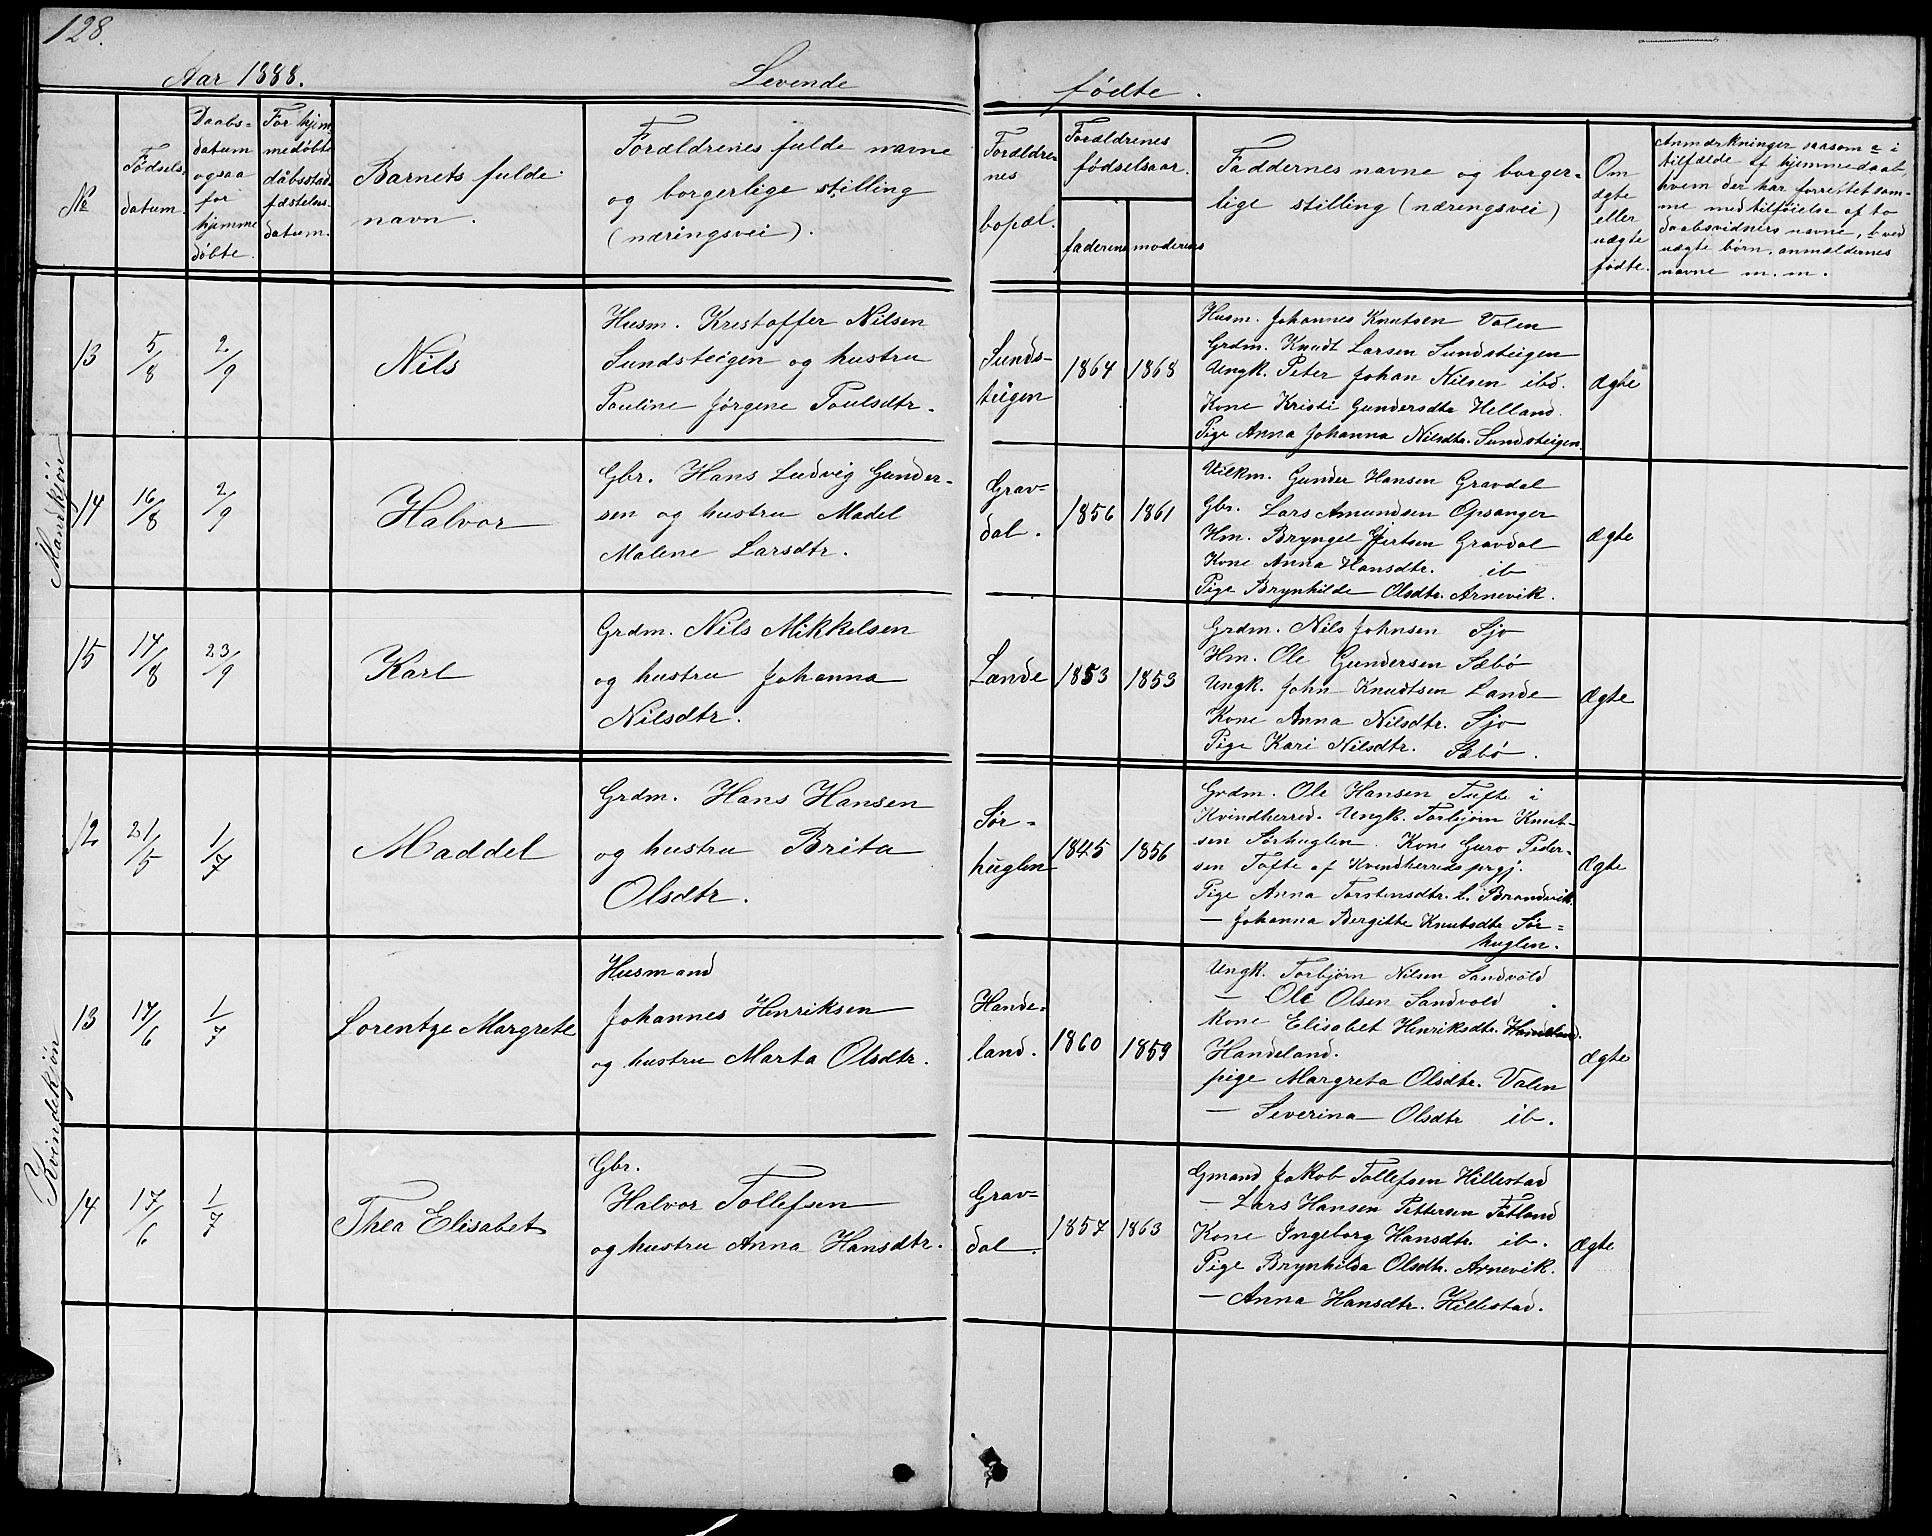 128.
Aar 1888.
Levende
fødte.
№
Fødsels-
datum.
Daabs-
datum
ogsaa
for
hjemme
døbte.
For hjem
medøbte
dåbsstad
fæstelses
datum.
Barnets fulde
navn.
Forældrenes fulde navne
og borgerlige stilling
(næringsvei).
Forældre-
nes
bopæl.
Forældrenes
fødselsaar.
faderens
moderens
Faddernes navne og borger-
lige stilling (næringsvei)
Om
ægte
eller
uægte
fødte.
Anmærkninger saasom a i
tilfælde af hjemmedaab,
hvem der har forrettet sam-
me med tilføielse af to
daabsvidners navne, b ved
uægte børn, anmældernes
navne m. m.
Mandkjøn
13
5/8
2/9
Nils
Husm. Krestoffer Nilsen
Sundsteigen og hustru
Pauline Jørgene Poulsdtr.
Sunds-
teigen
1864
1868
Husm. Johannes Knutsen Valen
Grdm. Knudt Larsen Sundsteigen
Ungk. Peter Johan Nilsen ibd.
Kone Kristi Gundersdtr Helland.
Pige Anna Johanna Nilsdtr. Sundsteigen
ægte
14
16/8
2/9
Halvor
Gbr. Hans Ludvig Gunder-
sen og hustru Madel
Malene Larsdtr.
Grav-
dal.
1856
1861
Vilkm. Gunder Hansen Gravdal
Gbr. Lars Amundsen Opsanger
Hm. Bryngel Gjertsen Gravdal
Kone Anna Hansdtr. ib
Pige Brynhilde Olsdtr. Arnevik.
ægte
15
17/8
23/9
Karl
Grdm. Nils Mikkelsen
og hustru Johanna
Nilsdtr.
Lande
1853
1853
Grdm. Nils Johnsen Sjo
Hm. Ole Gundersen Sæbø
Ungk. John Knudtsen Lande
Kone Anna Nilsdtr. Sjo
Pige Kari Nilsdtr. Sæbø.
ægte
Kvindekjøn
12
21/5
1/7
Maddel
Grdm. Hans Hansen
og hustru Brita
Olsdtr.
Sør-
huglen
1845
1856
Grdm. Ole Hansen Tufte i
Kvindherred. Ungk. Torbjørn Knut-
sen Sørhuglen. Kone Guro Peder-
sen Tofte af Kvindherreds prgj.
Pige Anna Torstensdtr. L. Brandvik.
— Johanna Bergitte Knutsdtr Sør-
huglen.
ægte
13
14/6
1/7
Lorentze Margrete
Husmand
Johannes Henriksen
og hustru Marta Olsdtr.
Hande-
land.
1860
1859
Ungk. Torbjørn Nilsen Sandvold
— Ole Olsen Sandvold
Kone Elisabet Henriksdtr. Handeland.
Handeland.
pige Margreta Olsdtr. Valen
— Severina Olsdtr ib.
ægte
14
17/6
1/7
Thea Elisabet
Gbr.
Halvor Tollefsen
og hustru Anna Hansdtr.
Grav-
dal.
1857
1863
Gmand Jakob Tollefsen Hillestad
— Lars Hansen Pettersen Fatland
Kone Ingeborg Hansdtr. ib.
Pige Brynhilda Olsdtr. Arnevik.
— Anna Hansdtr. Hillestad.
ægte